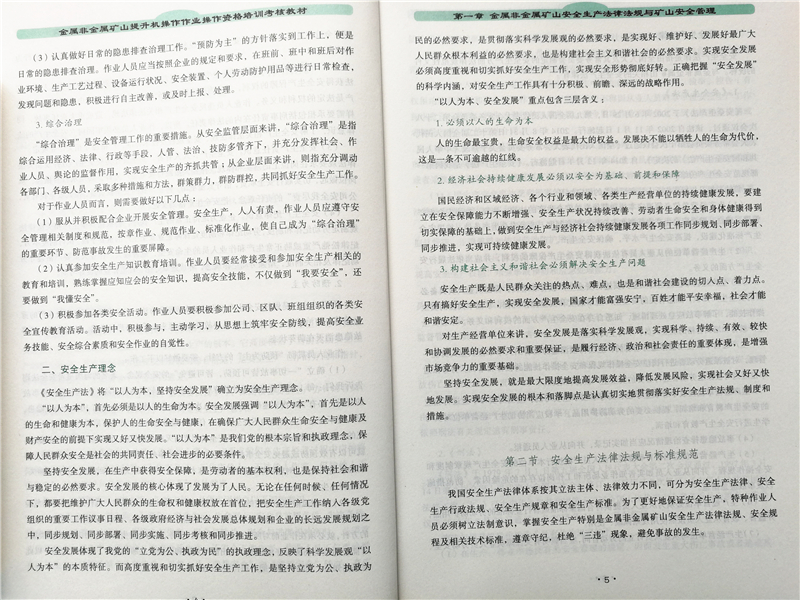 金属非金属矿山提升机操作作业操作资格培训考核教材
（3）认真做好日常的隐患排查治理工作。“预防为主”的方针落实到工作上，便是
日常的隐患排查治理。作业人员应当按照企业的规定和要求，在班前、班中和班后对作
业环境、生产工艺过程、设备运行状况、安全装置、个人劳动防护用品等进行日常检查，
发现问题和隐患，积极进行自主改善，或及时上报、处理。
3. 综合治理
“综合治理”是安全管理工作的重要措施。从安全监管层面来讲，“综合治理”是指
综合运用经济、法律、行政等手段，人管、法治、技防多管齐下，并充分发挥社会、作
业人员、舆论的监督作用，实现安全生产的齐抓共管；从企业层面来讲，则指充分调动
各部门、各级人员，采取多种措施和方法，群策群力，群防群控，共同抓好安全生产工作。
对于作业人员而言，则需要做好以下几点：
（1）服从并积极配合企业开展安全管理。安全生产，人人有责，作业人员应遵守安
全管理相关制度和规范，按章作业、规范作业、标准化作业，使自己成为“综合治理”
的重要环节、防范事故发生的重要屏障。
（2）认真参加安全生产知识教育培训。作业人员要经常接受和参加安全生产相关的
教育和培训，熟练掌握应知应会的安全知识，提高安全技能，不仅做到“我要安全”，还
要做到“我懂安全”。
（3）积极参加各类安全活动。作业人员要积极参加公司、区队、班组组织的各类安
全宣传教育活动。活动中，积极参与，主动学习，从思想上筑牢安全防线，提高安全业
务技能、安全综合素质和安全作业的自觉性。
二、安全生产理念
《安全生产法》将“以人为本，坚持安全发展”确立为安全生产理念。
“以人为本”，首先必须是以人的生命为本。安全发展强调“以人为本”，首先是以人
的生命和健康为本，保护人的生命安全与健康，在确保广大人民群众生命安全与健康及
财产安全的前提下实现又好又快发展。“以人为本”是我们党的根本宗旨和执政理念，保
障人民群众安全是社会的共同责任、社会进步的必要条件。
坚持安全发展，在生产中获得安全保障，是劳动者的基本权利，也是保持社会和谐
与稳定的必然要求。安全发展的核心体现了发展为了人民。无论在任何时候、任何情况
下，都要把维护广大人民群众的生命权和健康权放在首位，把安全生产工作纳入各级党
组织的重要工作议事日程、各级政府经济与社会发展总体规划和企业的长远发展规划之
中，同步规划、同步部署、同步实施、同步考核和同步推进。
安全发展体现了我党的“立党为公、执政为民”的执政理念，反映了科学发展观“以
人为本”的本质特征。而高度重视和切实抓好安全生产工作，是坚持立党为公、执政为
第一章 金属非金属矿山安全生产法律法规与矿山安全管理
民的必然要求，是贯彻落实科学发展观的必然要求，是实现好、维护好、发展好最广大
人民群众根本利益的必然要求，也是构建社会主义和谐社会的必然要求。实现安全发展
必须高度重视和切实抓好安全生产工作，实现安全形势彻底好转。正确把握“安全发展”
的科学内涵，对安全生产工作具有十分积极、前瞻、深远的战略作用。
“以人为本、安全发展”重点包含三层含义：
1. 必须以人的生命为本
人的生命最宝贵，生命安全权益是最大的权益。发展决不能以牺牲人的生命为代价，
这是一条不可逾越的红线。
2. 经济社会持续健康发展必须以安全为基础、前提和保障
国民经济和区域经济、各个行业和领域、各类生产经营单位的持续健康发展，要建
立在安全保障能力不断增强、安全生产状况持续改善、劳动者生命安全和身体健康得到
切实保障的基础上，做到安全生产与经济社会持续健康发展各项工作同步规划、同步部署、
同步推进，实现可持续健康发展。
3. 构建社会主义和谐社会必须解决安全生产问题
安全生产既是人民群众关注的热点、难点，也是和谐社会建设的切入点、着力点。
只有搞好安全生产，实现安全发展，国家才能富强安宁，百姓才能平安幸福，社会才能
和谐安定。
对生产经营单位来讲，安全发展是落实科学发展观，实现科学、持续、有效、较快
和协调发展的必然要求和重要保证，是履行经济、政治和社会责任的重要体现，是增强
市场竞争力的重要基础。
坚持安全发展，就是最大限度地提高发展效益，降低发展风险，实现社会又好又快
地发展。实现安全发展的根本和落脚点是认真切实地贯彻落实好安全生产法规、制度和
措施。
第二节 安全生产法律法规与标准规范
我国安全生产法律体系按其立法主体、法律效力不同，可分为安全生产法律、安全
生产行政法规、安全生产规章和安全生产标准。为了更好地保证安全生产，特种作业人
员必须树立法制意识，掌握安全生产特别是金属非金属矿山安全生产法律法规、安全规
程及相关技术标准，遵章守纪，杜绝“三违”现象，避免事故的发生。
·5·